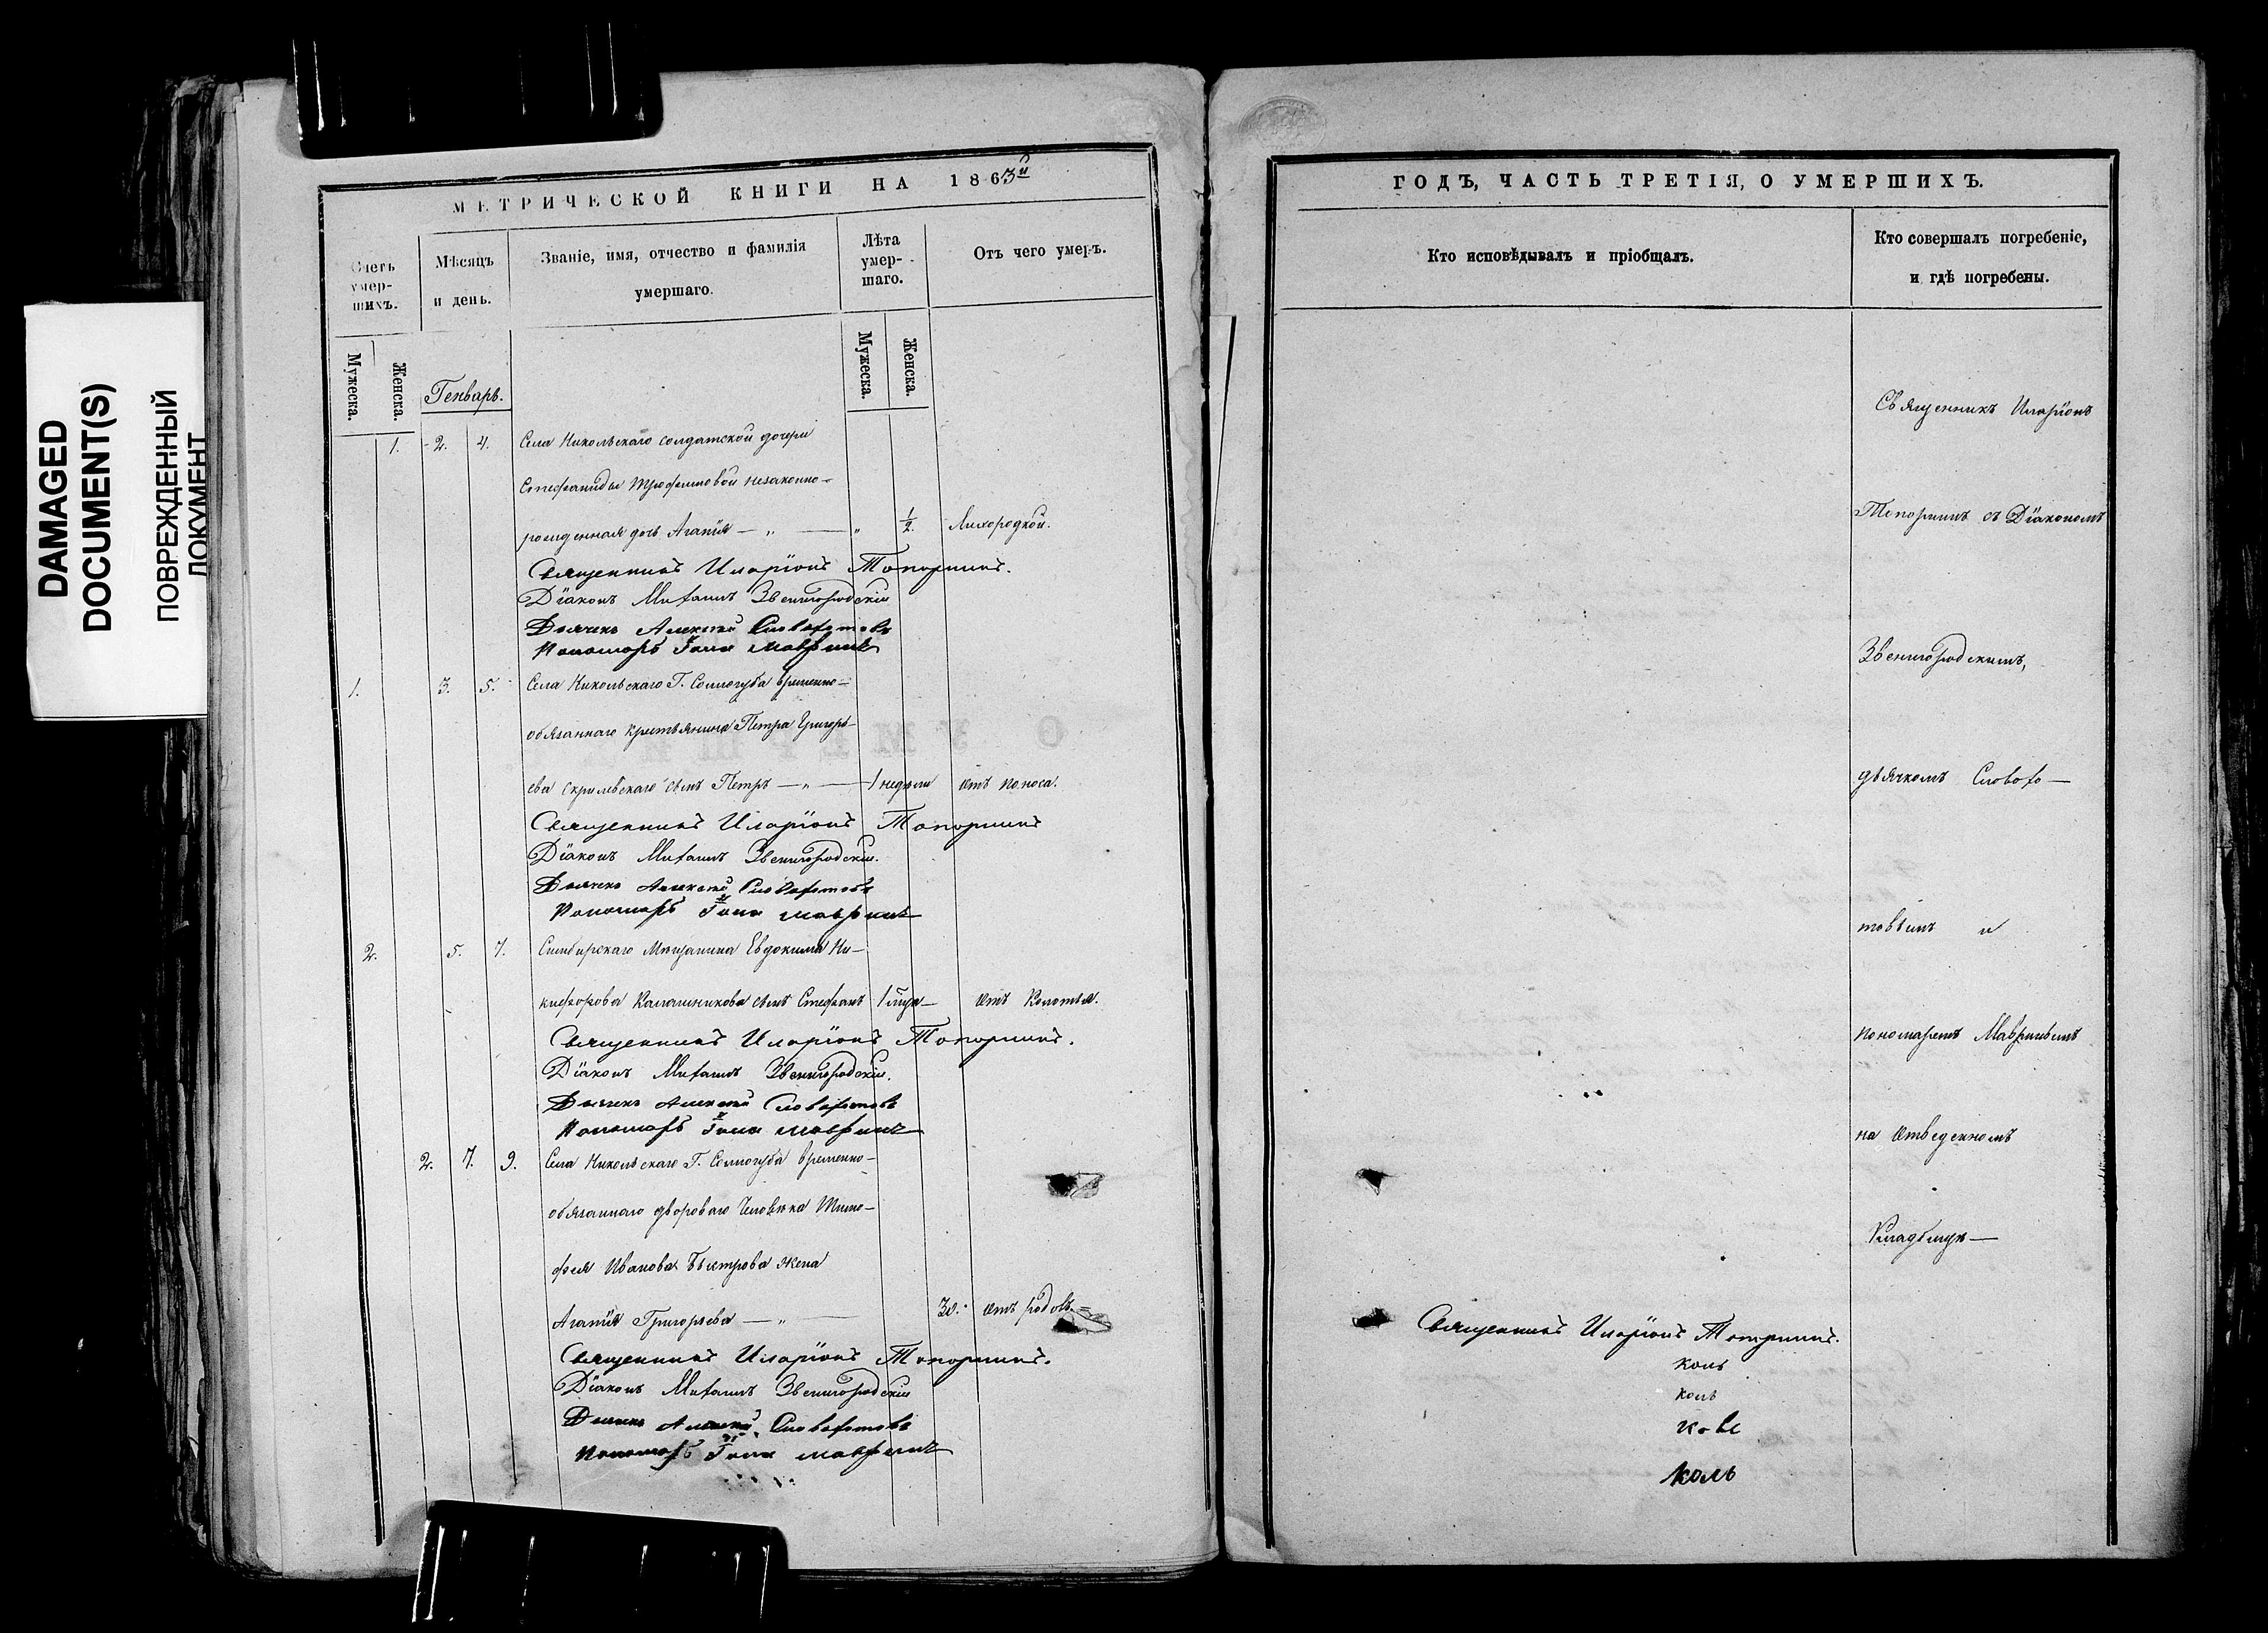 DAMAGED
DOCUMENT(S)
ПОВРЕЖДЕННЫЙ
ДОКУМЕНТ
МЕТРИЧЕСКОЙ КНИГИ НА 1863й
Счетъ умер-шихъ.
Мѣсяцъ и день.
Званіе, имя, отчество и фамилія умершаго.
Лѣта умер-шаго.
Отъ чего умеръ.
Мужеска.
Женска.
Генварь.
Мужеска.
Женска.
1. 2. 4. Села Никольскаго солдатской дочери
Степаниды Трофимовой незаконно-
рожденная дочь Агапія — „ — „ 1/2. Лихорадкой.
Священникъ Иларіонъ Топорнинъ.
Діаконъ Михаилъ Звенигородскій
Дьячекъ Алексей Словохотовъ
Пономарь Іона Мавринъ
1. 3. 5. Села Никольскаго Г. Соллогуба временно-
обязаннаго крестьянина Петра Григорь-
ева сынъ Петръ — „ — 1 недели отъ поноса.
Священникъ Иларіонъ Топорнинъ
Діаконъ Михаилъ Звенигородскій.
Дьячекъ Алексей Словохотовъ
Пономарь Іона Мавринъ
2. 5. 7. Симбирскаго Мещанина Евдокима Ни-
кифорова Калашникова сынъ Стефанъ 1 отъ Колотья.
Священникъ Иларіонъ Топорнинъ.
Діаконъ Михаилъ Звенигородскій.
Дьячекъ Алексей Словохотовъ
Пономарь Іона Мавринъ
2. 7. 9. Села Никольскаго Г. Соллогуба временно-
обязаннаго двороваго человека Тимо-
фея Иванова Быстрова жена
Агапія Григорьева — „ — 30. отъ родовъ.
Священникъ Иларіонъ Топорнинъ.
Діаконъ Михаилъ Звенигородскій
Дьячекъ Алексей Словохотовъ
Пономарь Іона Мавринъ
ГОДЪ, ЧАСТЬ ТРЕТІЯ, О УМЕРШИХЪ.
Кто исповѣдывалъ и пріобщалъ.
Кто совершалъ погребеніе,
и гдѣ погребены.
Священникъ Иларіонъ
Топорнинъ съ Діакономъ
Звенигородскимъ,
дьячкомъ Словохо-
товымъ и
пономаремъ Мавринымъ
на отведенномъ
Кладбище —
Священникъ Иларіонъ Топорнинъ.